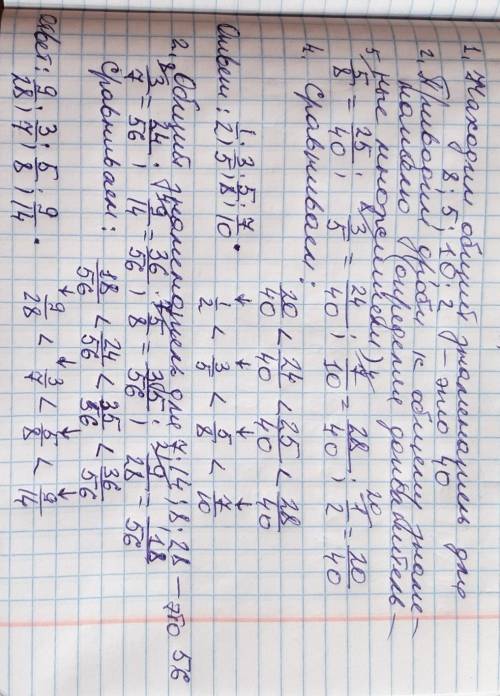 1. Находим общий знаменатель для
8; 5; 10; 2 – это 40
2. Приводим дроби к общему знаме-
нателю (определение дополнитель-
ные множители)
5/8 = 25/40; 3/5 = 24/40; 7/10 = 28/40; 1/2 = 20/40
4. Сравниваем:
20/40 < 24/40 < 25/40 < 28/40
↓ ↓ ↓ ↓
1/2 < 3/5 < 5/8 < 7/10
Ответ: 1/2; 3/5; 5/8; 7/10.
2. Общий знаменатель для 7; 14; 8; 28 – это 56
3/7 = 24/56; 9/14 = 36/56; 5/8 = 35/56; 9/28 = 18/56
Сравниваем:
18/56 < 24/56 < 35/56 < 36/56
↓ ↓ ↓ ↓
9/28 < 3/7 < 5/8 < 9/14
Ответ: 9/28; 3/7; 5/8; 9/14.